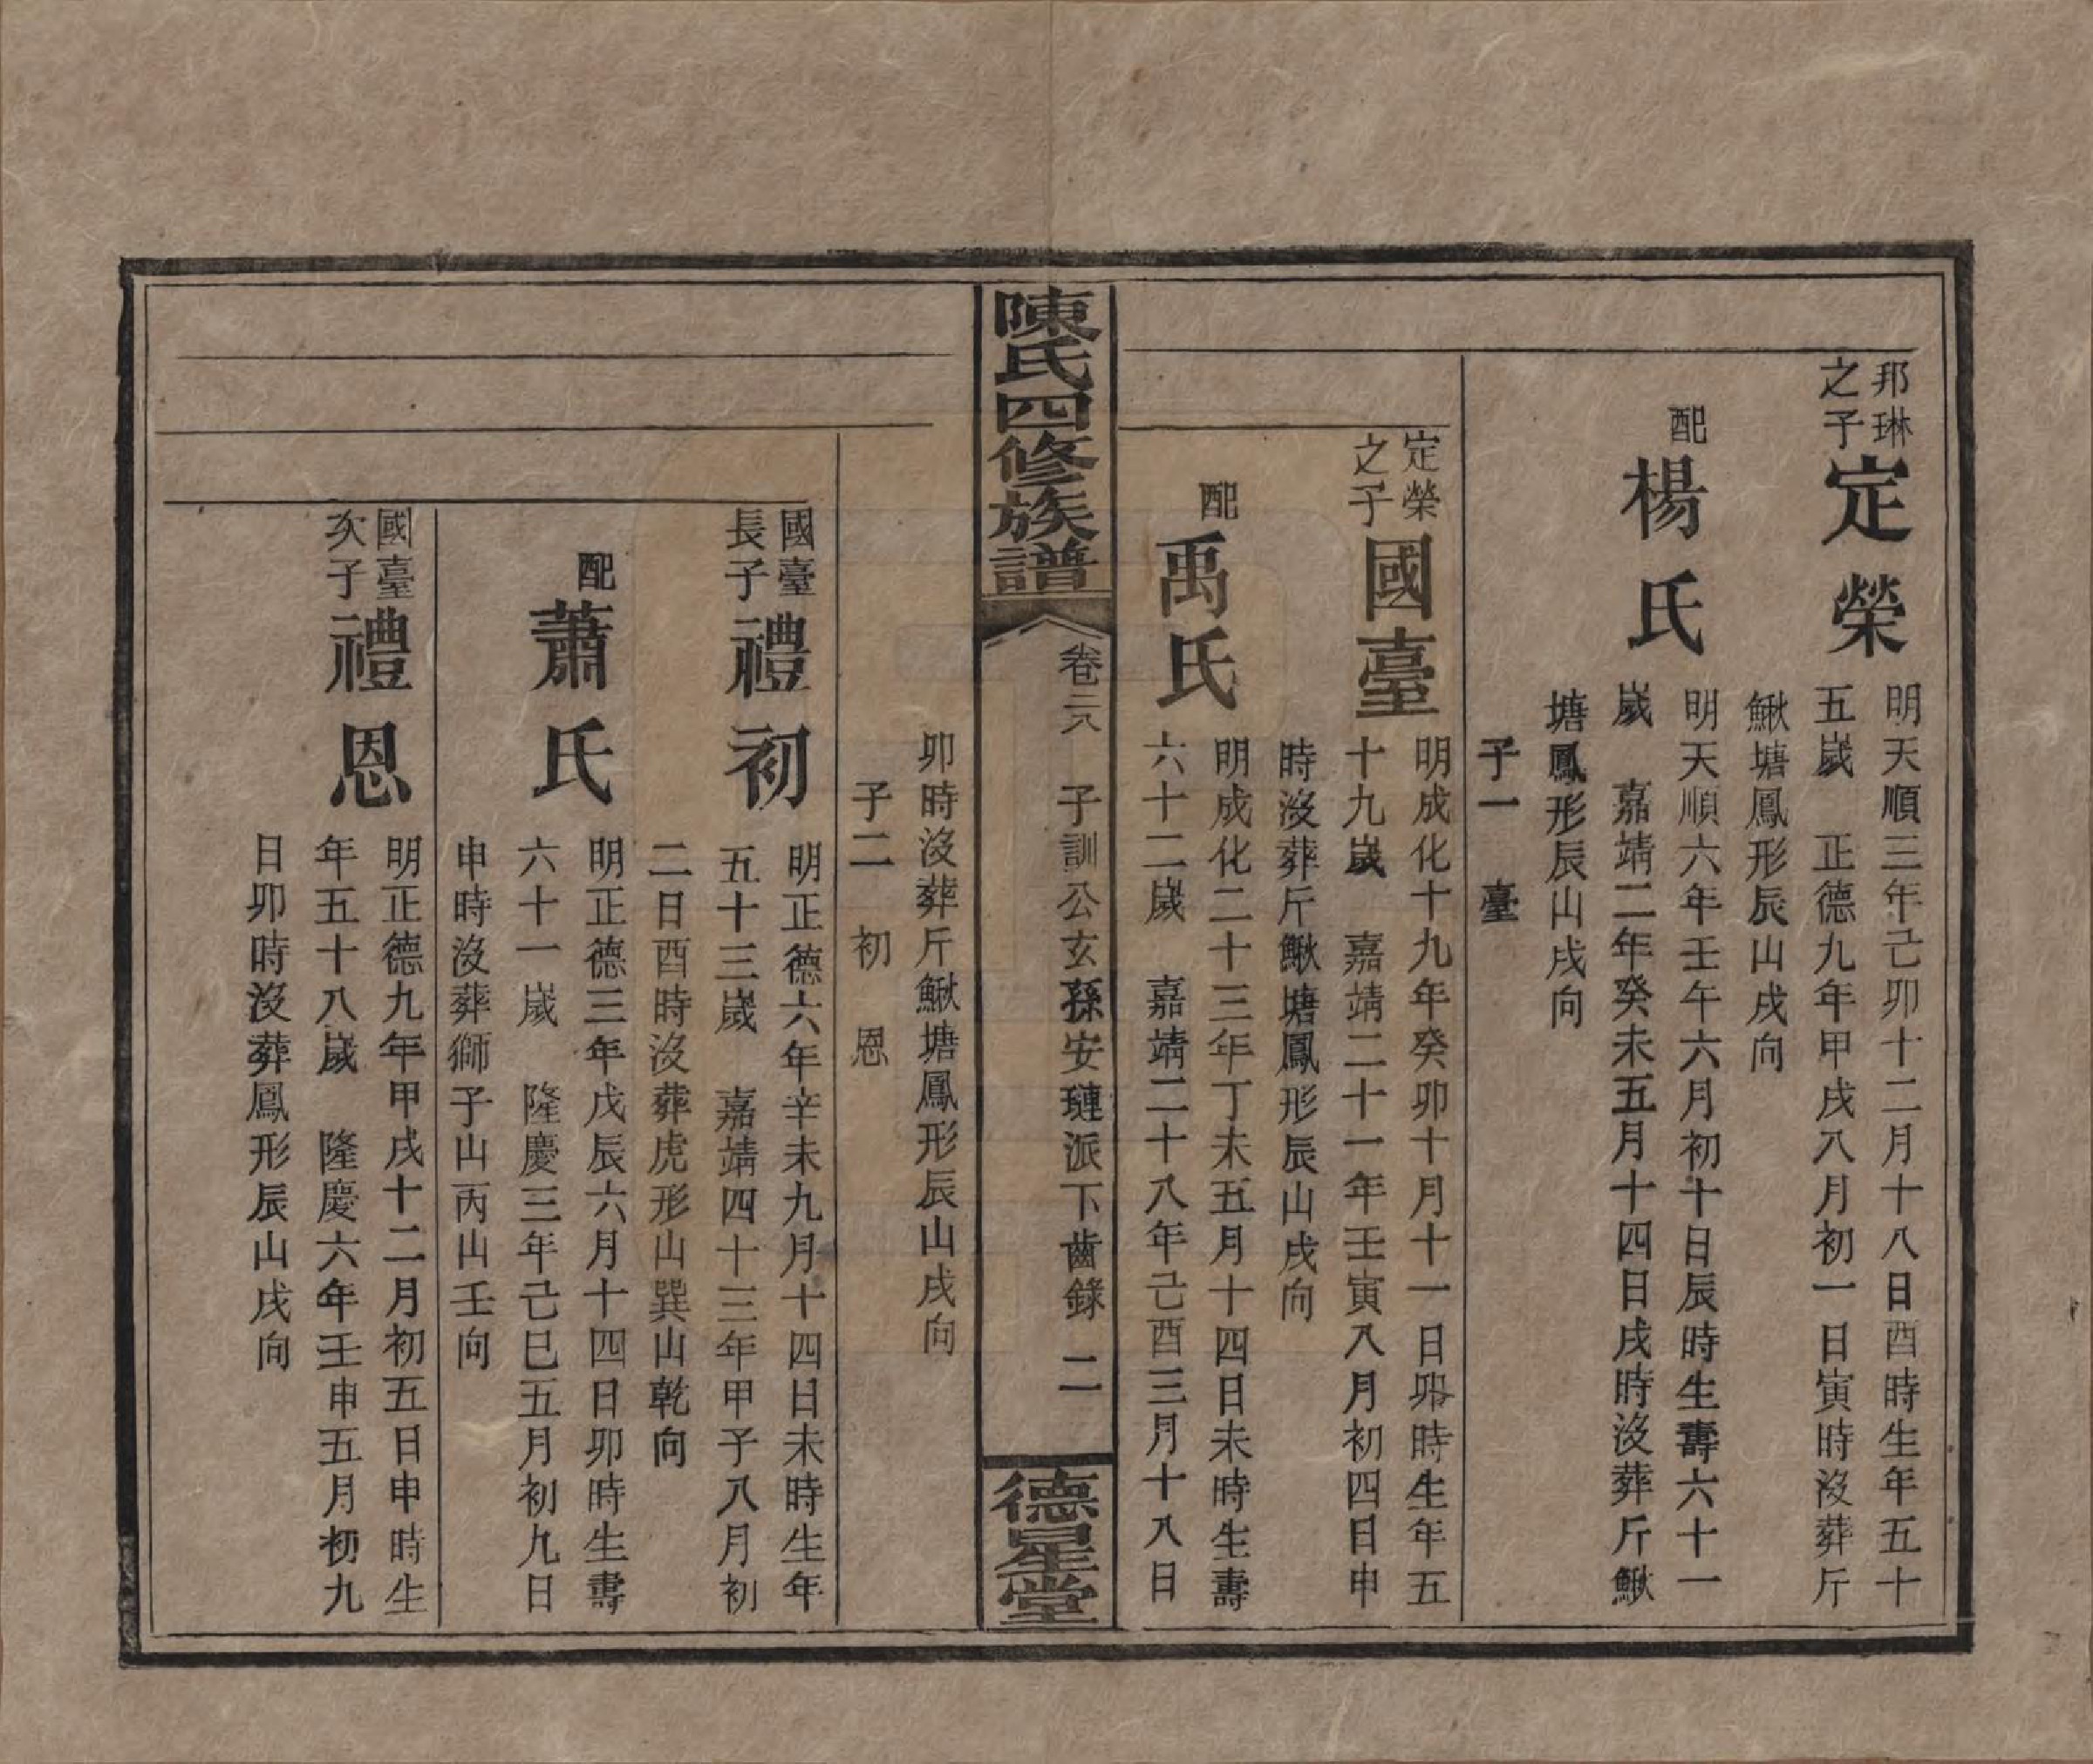 邦琳
之子
定榮
明天順三年己卯十二月十八日酉時生年五十
五歲　正德九年甲戌八月初一日寅時沒葬斤
鰍塘鳳形辰山戌向
配
楊氏
明天順六年壬午六月初十日辰時生壽六十一
歲　嘉靖二年癸未五月十四日戌時沒葬斤鰍
塘鳳形辰山戌向
子一　臺
定榮
之子
國臺
明成化十九年癸卯十月十一日卯時生年五
十九歲　嘉靖二十一年壬寅八月初四日申
時沒葬斤鰍塘鳳形辰山戌向
配
禹氏
明成化二十三年丁未五月十四日未時生壽
六十二歲　嘉靖二十八年己酉三月十八日
陳氏四修族譜
卷三八　子訓公玄孫安璉派下齒錄　二
德星堂
卯時沒葬斤鰍塘鳳形辰山戌向
子二　初　恩
國臺
長子
禮初
明正德六年辛未九月十四日未時生年
五十三歲　嘉靖四十三年甲子八月初
二日酉時沒葬虎形山巽山乾向
配
蕭氏
明正德三年戊辰六月十四日卯時生壽
六十一歲　隆慶三年己巳五月初九日
申時沒葬獅子山丙山壬向
國臺
次子
禮恩
明正德九年甲戌十二月初五日申時生
年五十八歲　隆慶六年壬申五月初九
日卯時沒葬鳳形辰山戌向